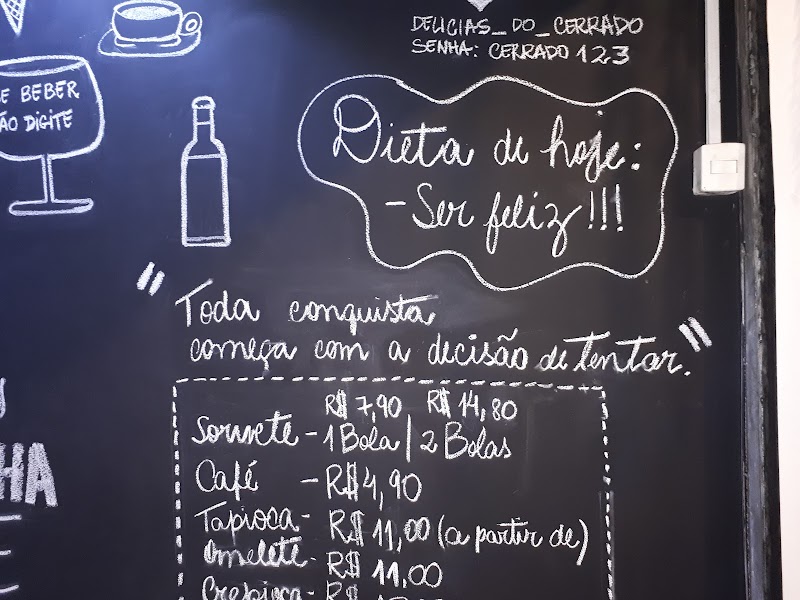 DELICIAS_DO_CERRADO
SENHA: CERRADO 123
E BEBER
ÃO DIGITE
Dieta de hoje:
- Ser feliz!!!
"Toda conquista
começa com a decisão de tentar."
R$ 7,90 R$ 14,80
Sorvete - 1 Bola | 2 Bolas
Café - R$ 4,90
Tapioca - R$ 11,00 (a partir de)
Omelete - R$ 11,00
Crepioca - R$
HA